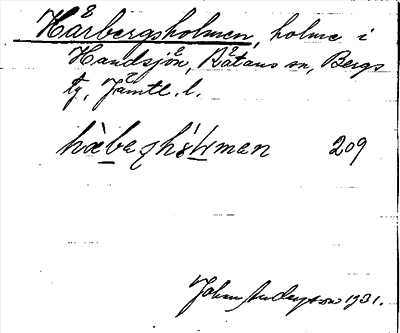 Hårbergsholmen, holme i
Handsjön, Rätans sn, Bergs
tg, Jämtl. l.
209
John Andersson 1931.